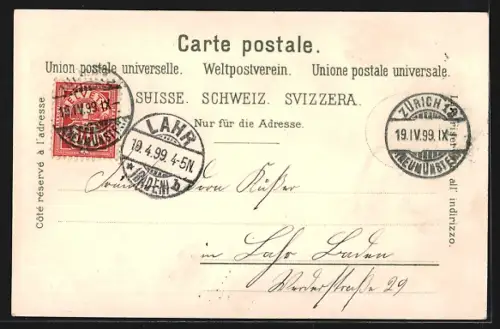 Carte postale.
Union postale universelle. Weltpostverein. Unione postale universale.
SUISSE. SCHWEIZ. SVIZZERA.
Nur für die Adresse.
Côté réservé à l'adresse
all' indirizzo.
19.IV.99.IX-
(NEUMÜNSTER)
LAHR
19.4.99.4-5N.
* (BADEN) b
ZÜRICH 12
19.IV.99.IX-
(NEUMÜNSTER)
in Lahr Baden
Werderstraße 29